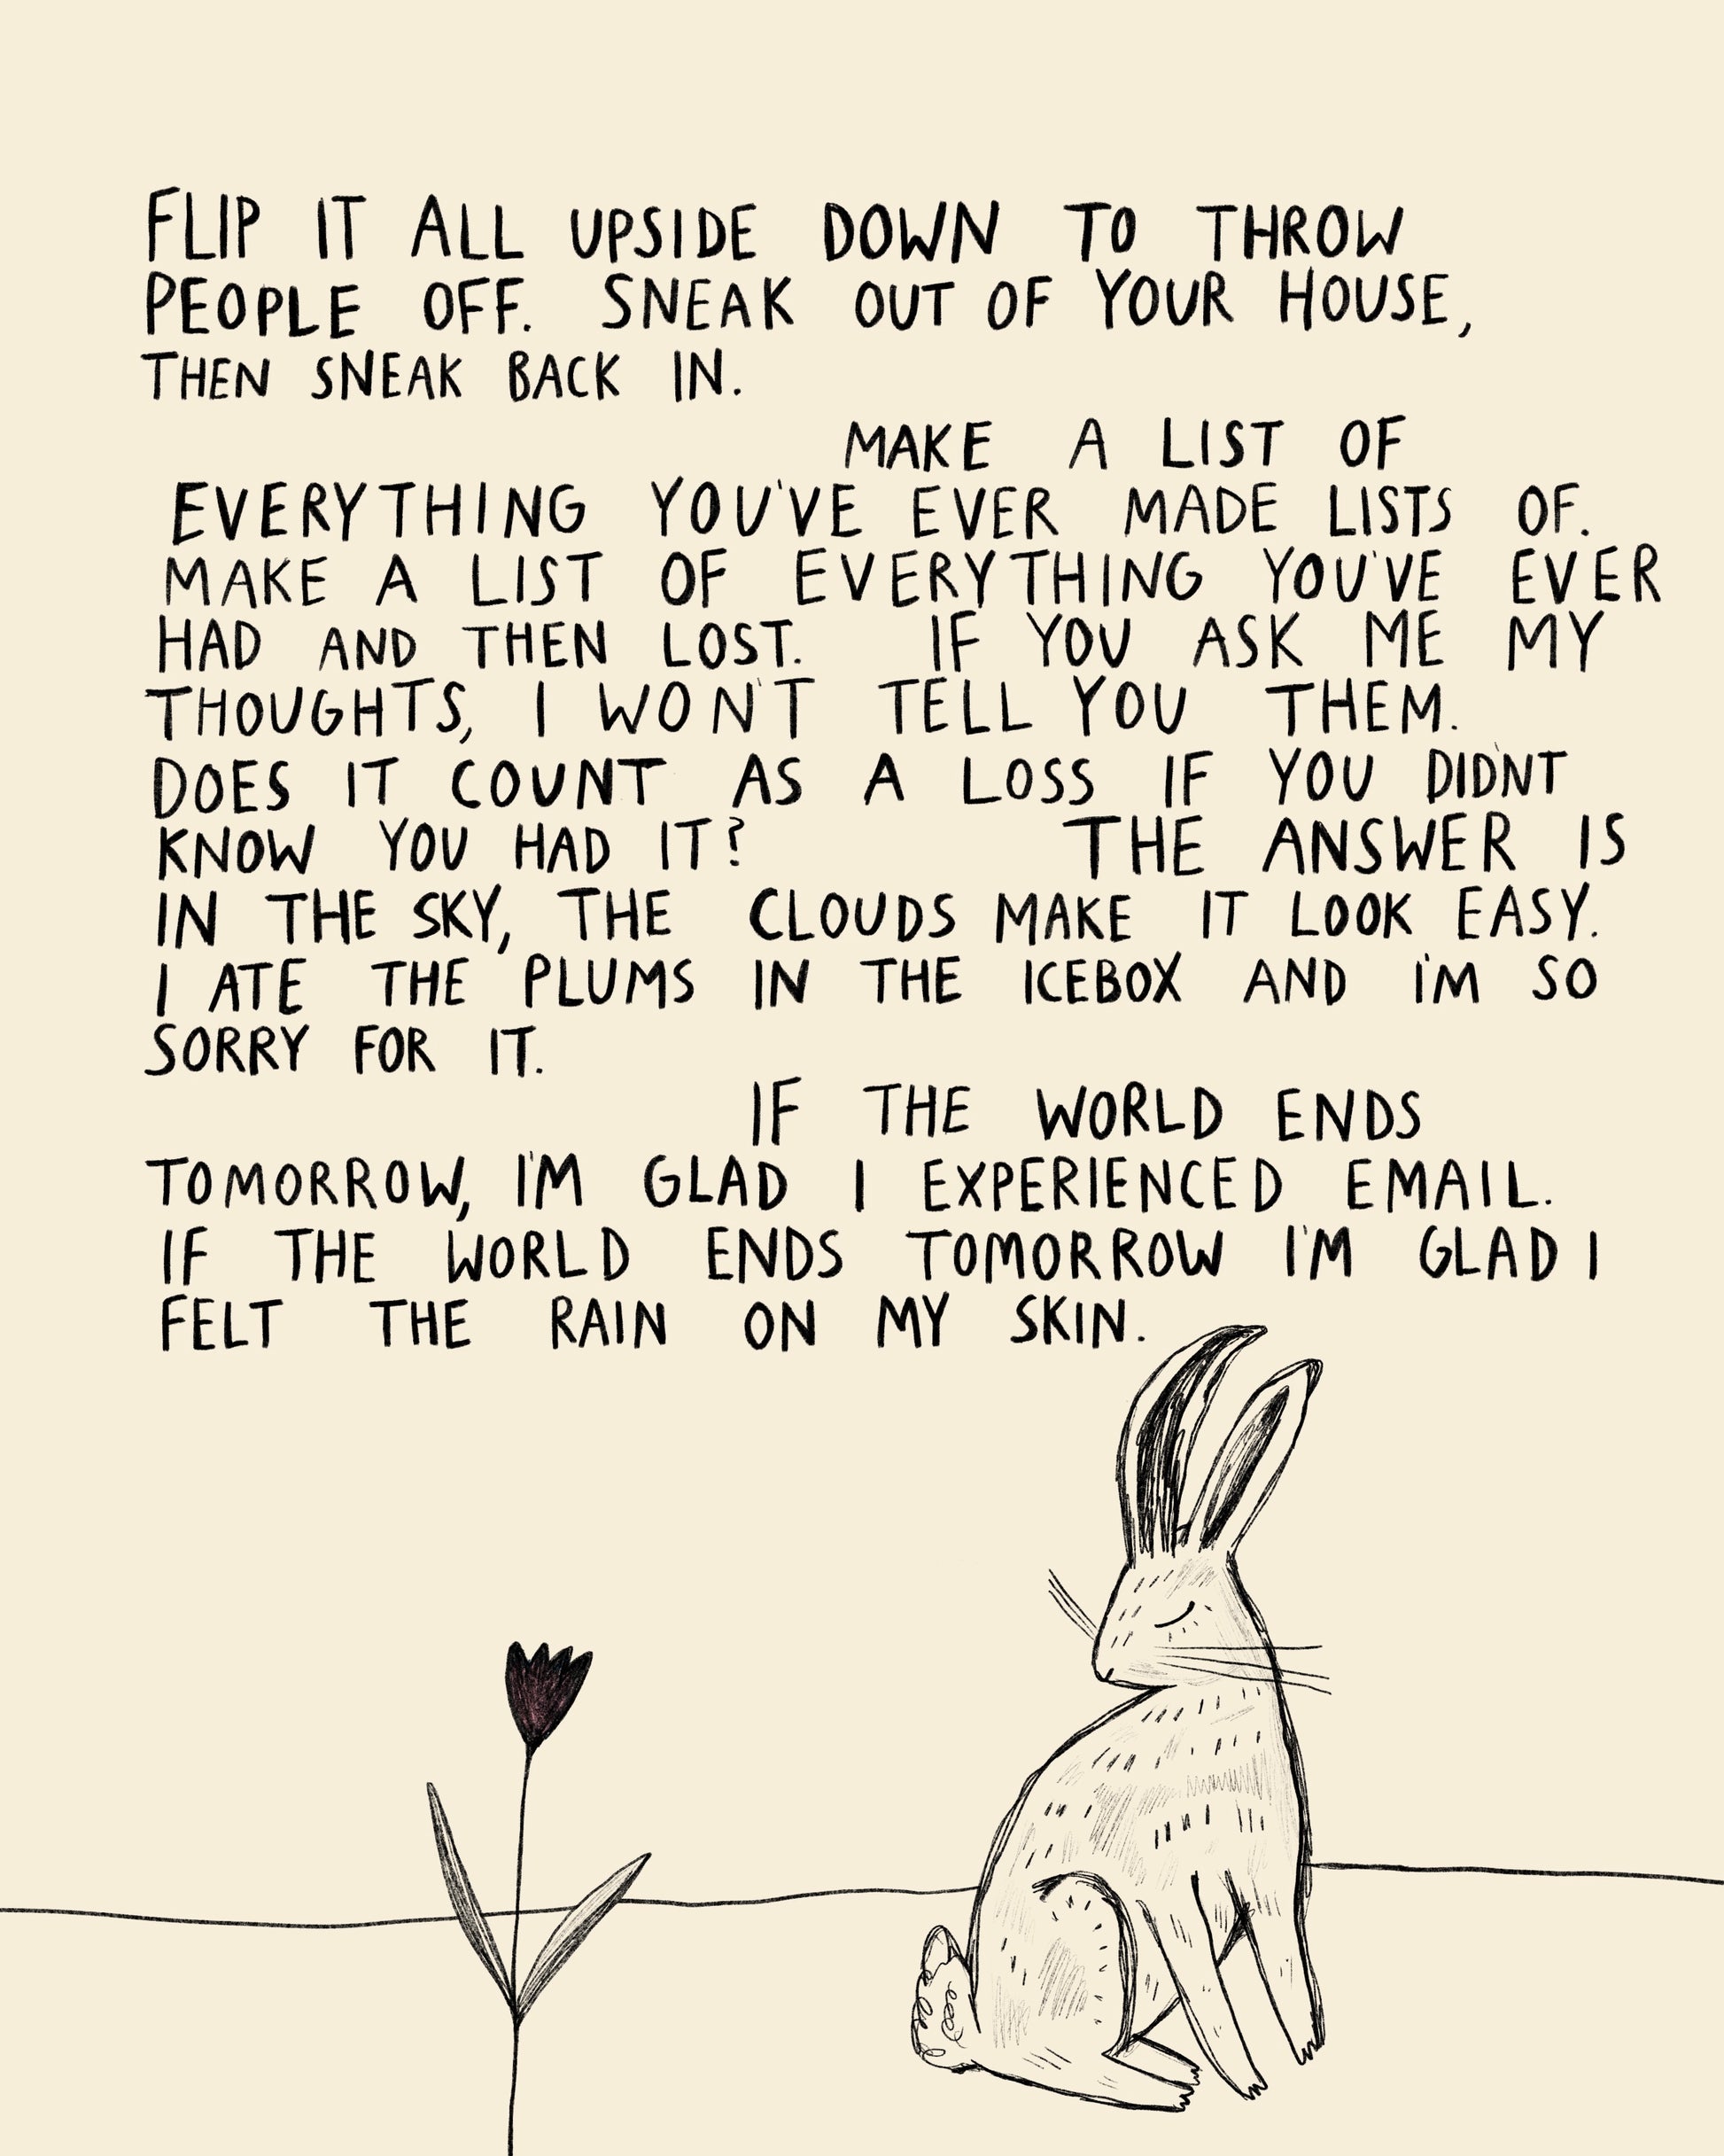 FLIP IT ALL UPSIDE DOWN TO THROW
PEOPLE OFF. SNEAK OUT OF YOUR HOUSE,
THEN SNEAK BACK IN.
MAKE A LIST OF
EVERYTHING YOU'VE EVER MADE LISTS OF.
MAKE A LIST OF EVERYTHING YOU'VE EVER
HAD AND THEN LOST. IF YOU ASK ME MY
THOUGHTS, I WON'T TELL YOU THEM.
DOES IT COUNT AS A LOSS IF YOU DIDN'T
KNOW YOU HAD IT? THE ANSWER IS
IN THE SKY, THE CLOUDS MAKE IT LOOK EASY.
I ATE THE PLUMS IN THE ICEBOX AND I'M SO
SORRY FOR IT.
IF THE WORLD ENDS
TOMORROW, I'M GLAD I EXPERIENCED EMAIL.
IF THE WORLD ENDS TOMORROW I'M GLAD I
FELT THE RAIN ON MY SKIN.